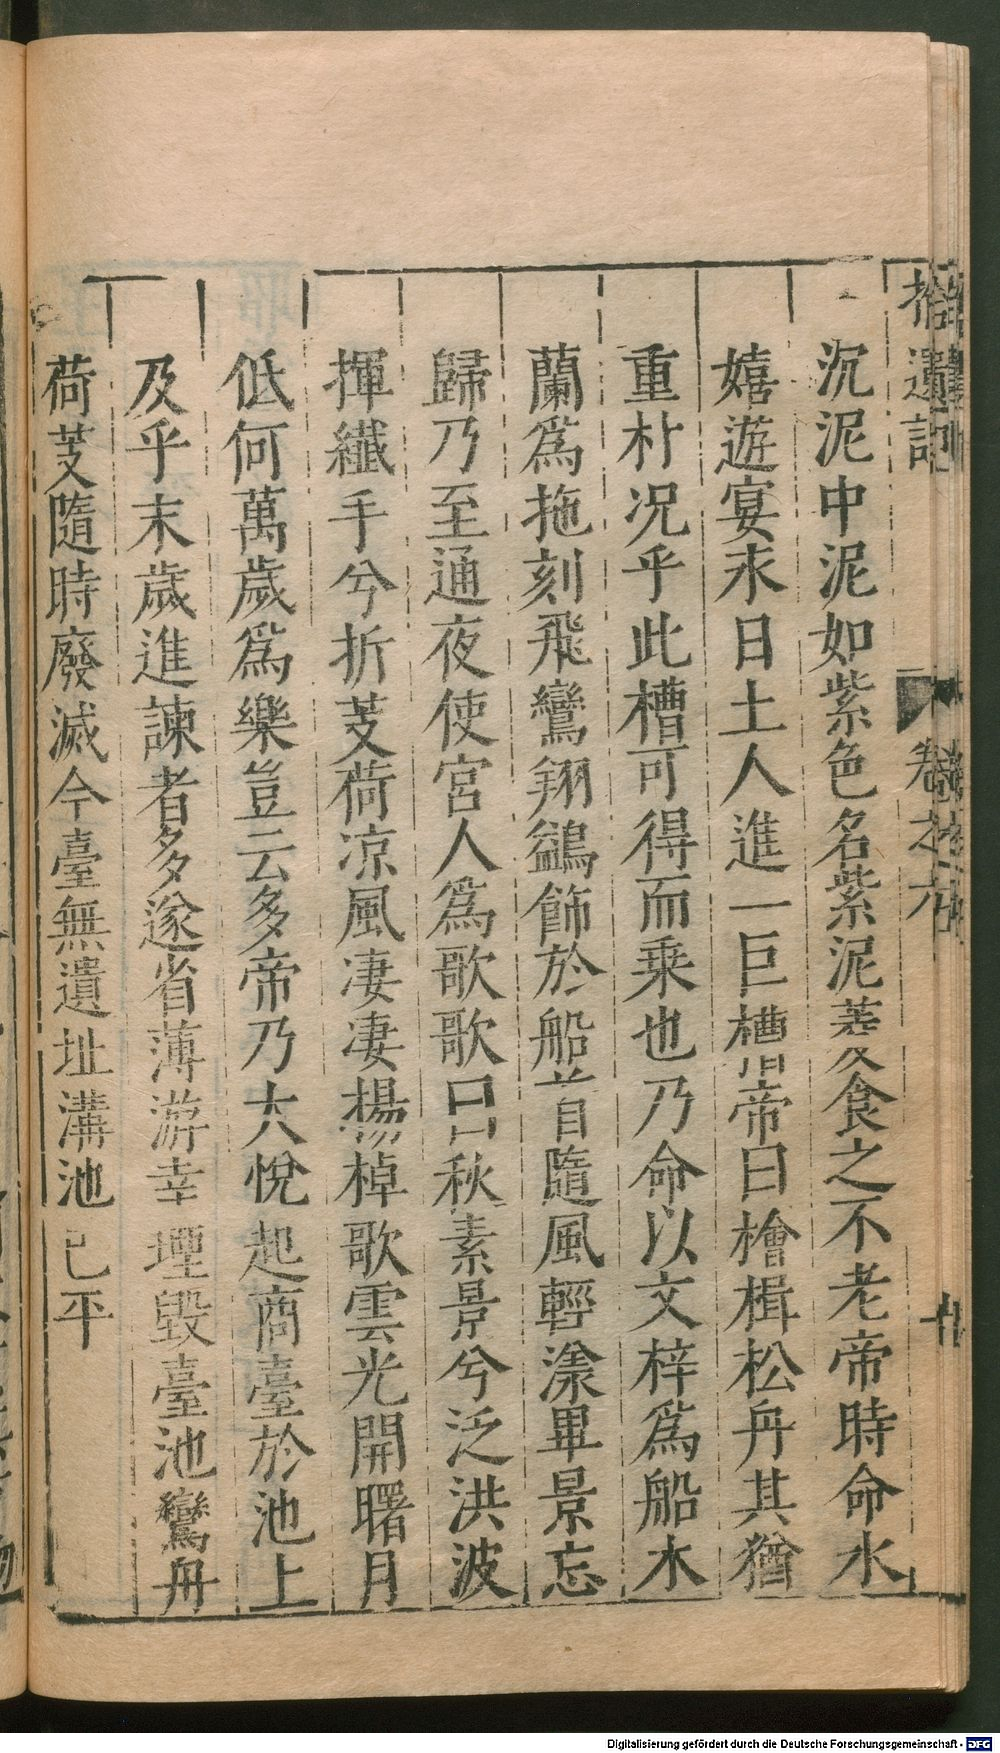 拾遺記
卷之六
沉泥中泥如紫色名紫泥菱食之不老帝時命水
嬉遊宴永日土人進一巨槽帝曰檜楫松舟其猶
重朴况乎此槽可得而乗也乃命以文梓爲船木
蘭爲拖刻飛鸞翔鷁飾於船首隨風輕漾畢景忘
歸乃至通夜使宮人爲歌歌曰秋素景兮泛洪波
揮纖手兮折芰荷凉風凄凄揚棹歌雲光開曙月
低何萬歲爲樂豈云多帝乃大悅起商臺於池上
及乎末歲進諫者多遂省薄游幸堙毀臺池鸞舟
荷芰隨時廢滅今臺無遺址溝池已平
Digitalisierung gefördert durch die Deutsche Forschungsgemeinschaft - DFG